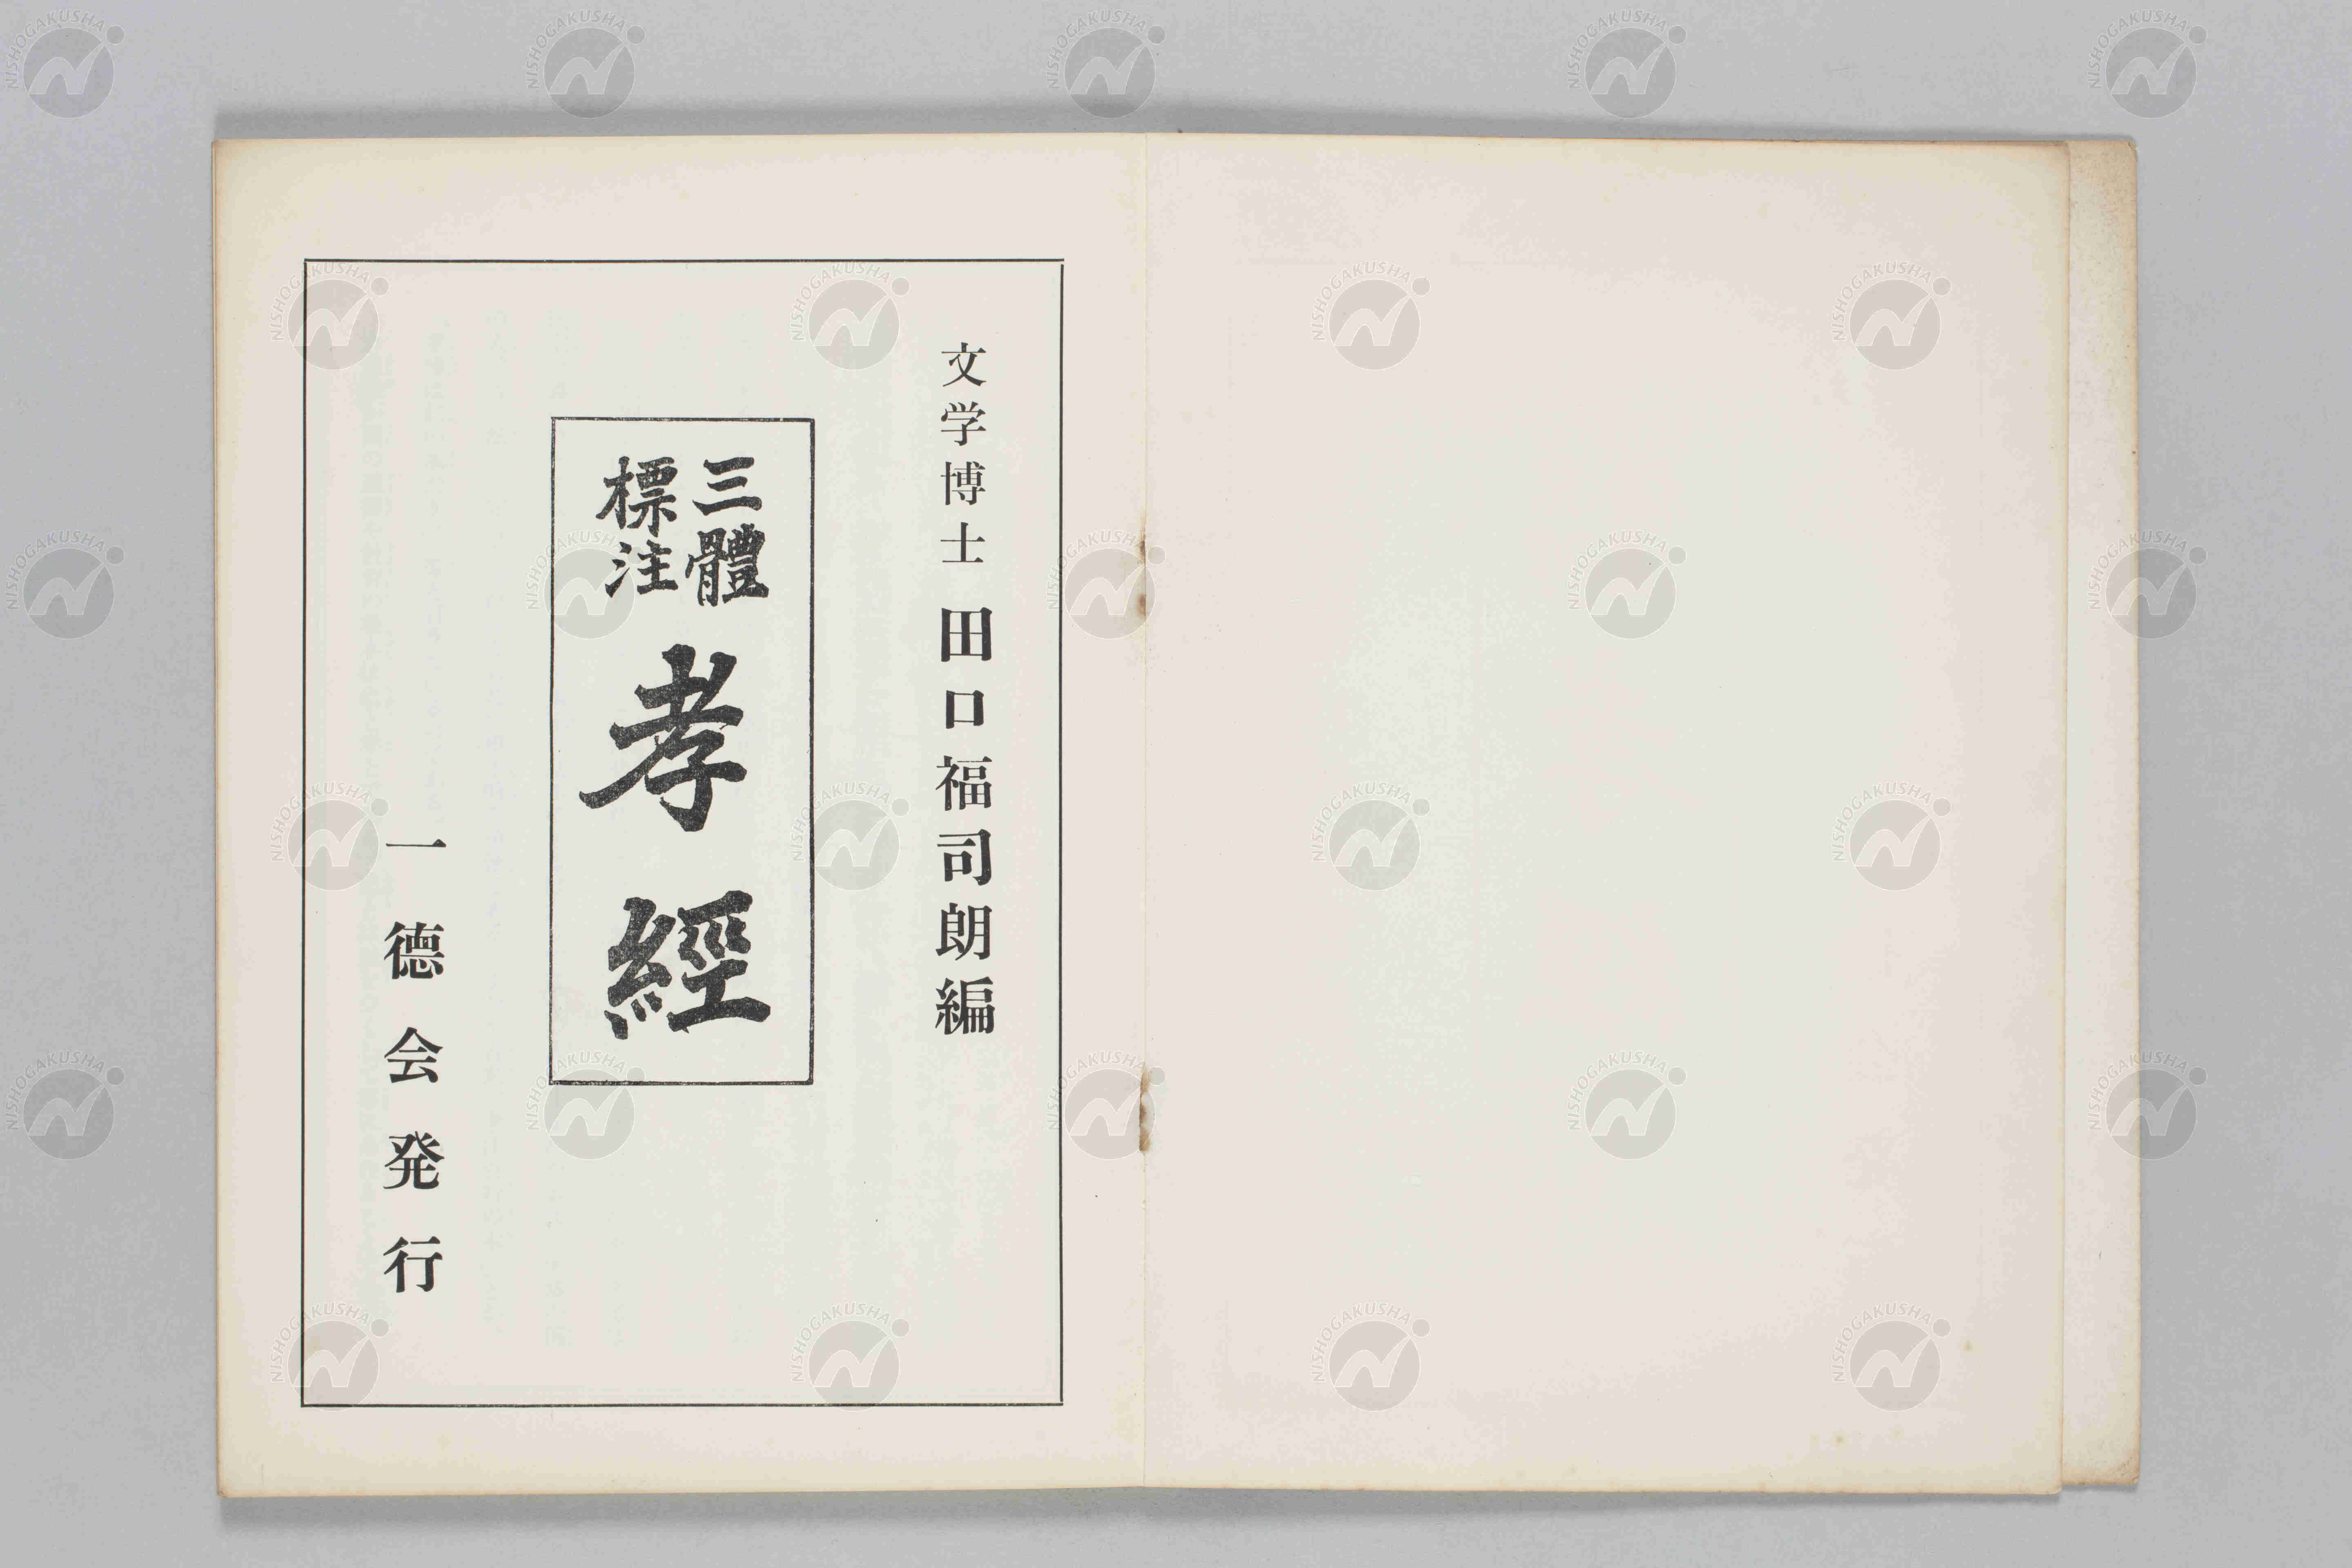 文学博士 田口福司朗編
三體
標注
孝經
一德会発行
NISHOGAKUSHA